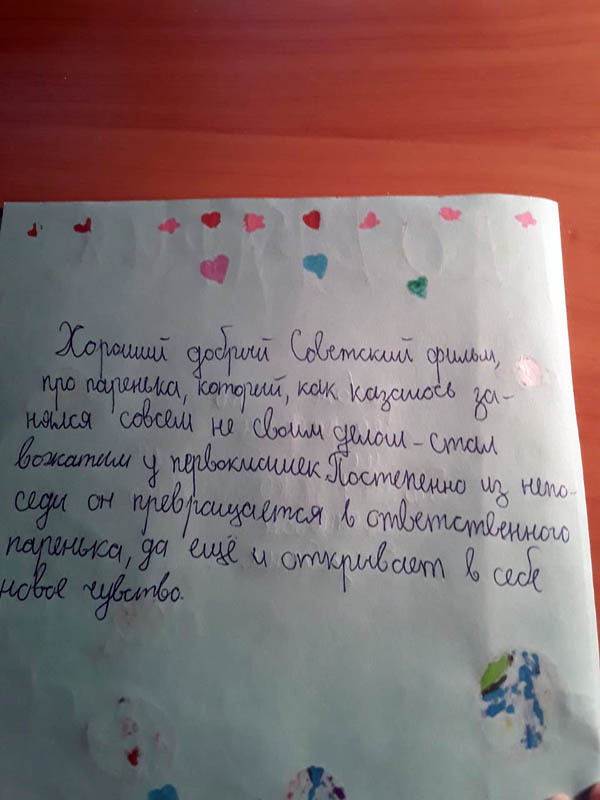 Хороший добрый Советский фильм,
про паренька, который, как казалось за-
нялся совсем не своим делом - стал
вожатым у первоклашек. Постепенно из непо-
седы он превращается в ответственного
паренька, да ещё и открывает в себе
новое чувство.